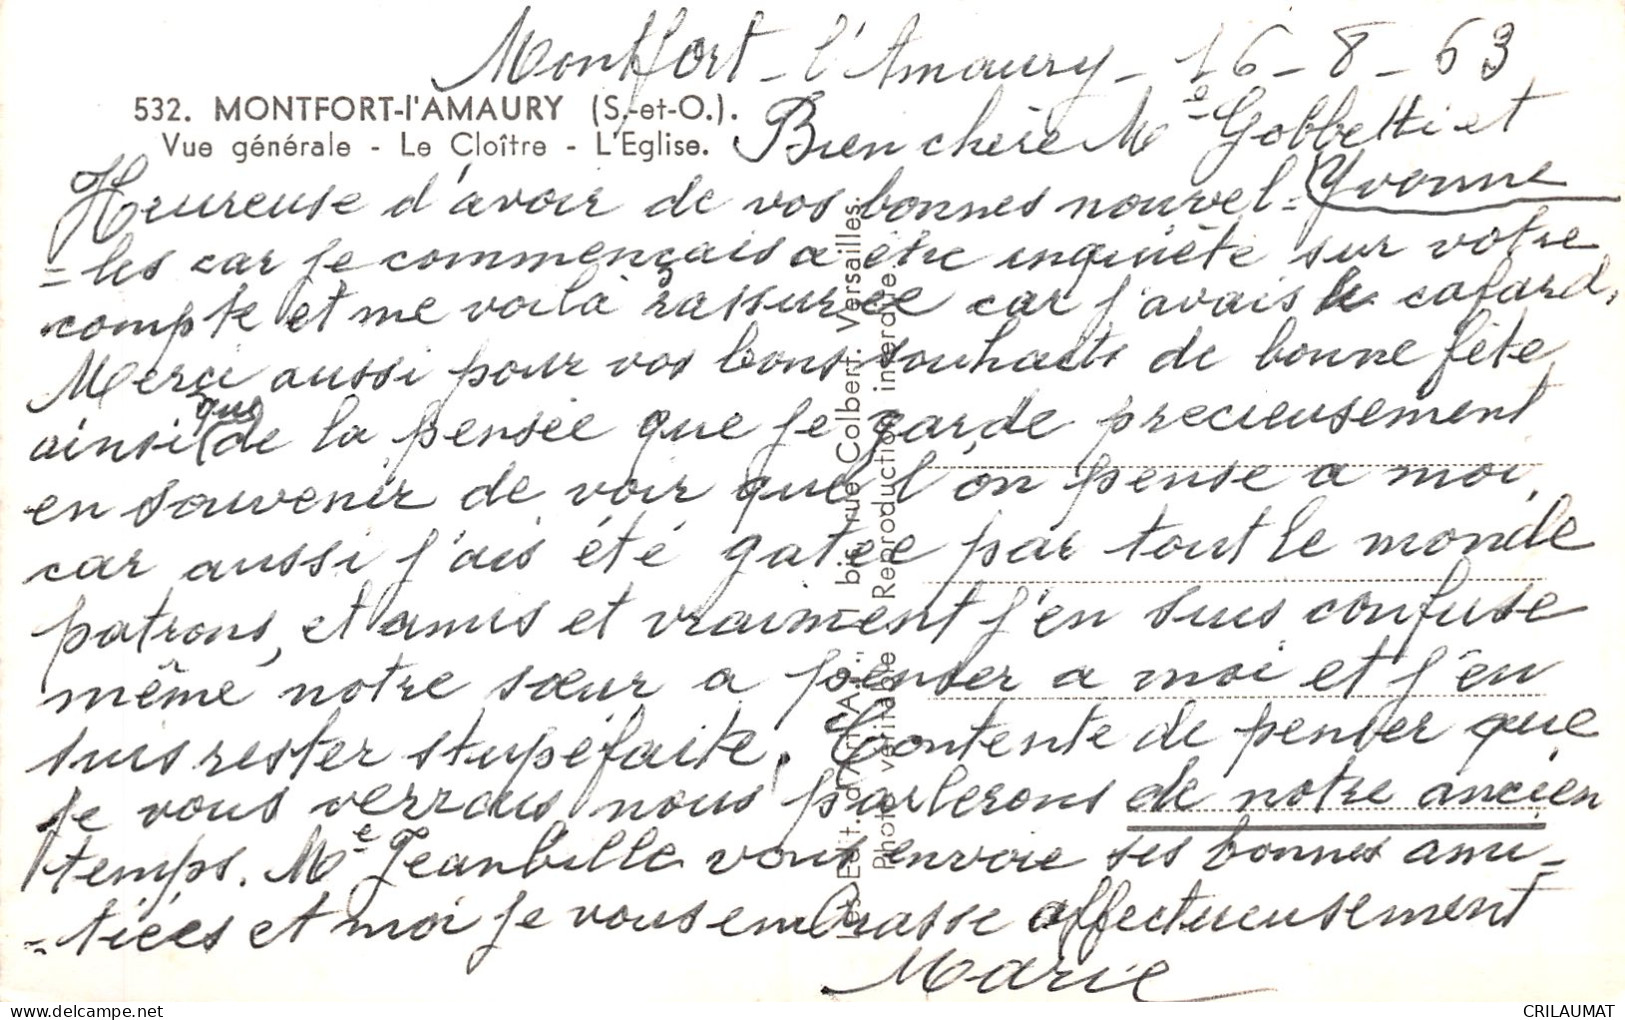 Montfort-l'Amaury - 16-8-63
532. MONTFORT-l'AMAURY (S.-et-O.).
Vue générale - Le Cloître - L'Eglise.
Bien chère Me Gobbetti et
Yvonne
Heureuse d'avoir de vos bonnes nouvel-
-les car je commençais a être inquiète sur votre
compte et me voilà rassurée car j'avais le cafard,
Merçi aussi pour vos bons souhaits de bonne fête,
ainsi que de la pensée que je garde precieusement
en souvenir de voir que l'on pense a moi,
car aussi j'ais été gatée par tout le monde
patrons, et amis et vraiment j'en suis confuse
même notre sœur a penser a moi et j'en
suis rester stupéfaite. Contente de penser que
je vous verrais nous parlerons de notre ancien
temps. Me Jeanbille vous envoie ses bonnes ami-
-tiées et moi je vous embrasse affectueusement
Marie
Edit. d'Art 1 bis, rue Colbert. Versailles.
Photo véritable Reproduction interdite.
CRILAUMAT